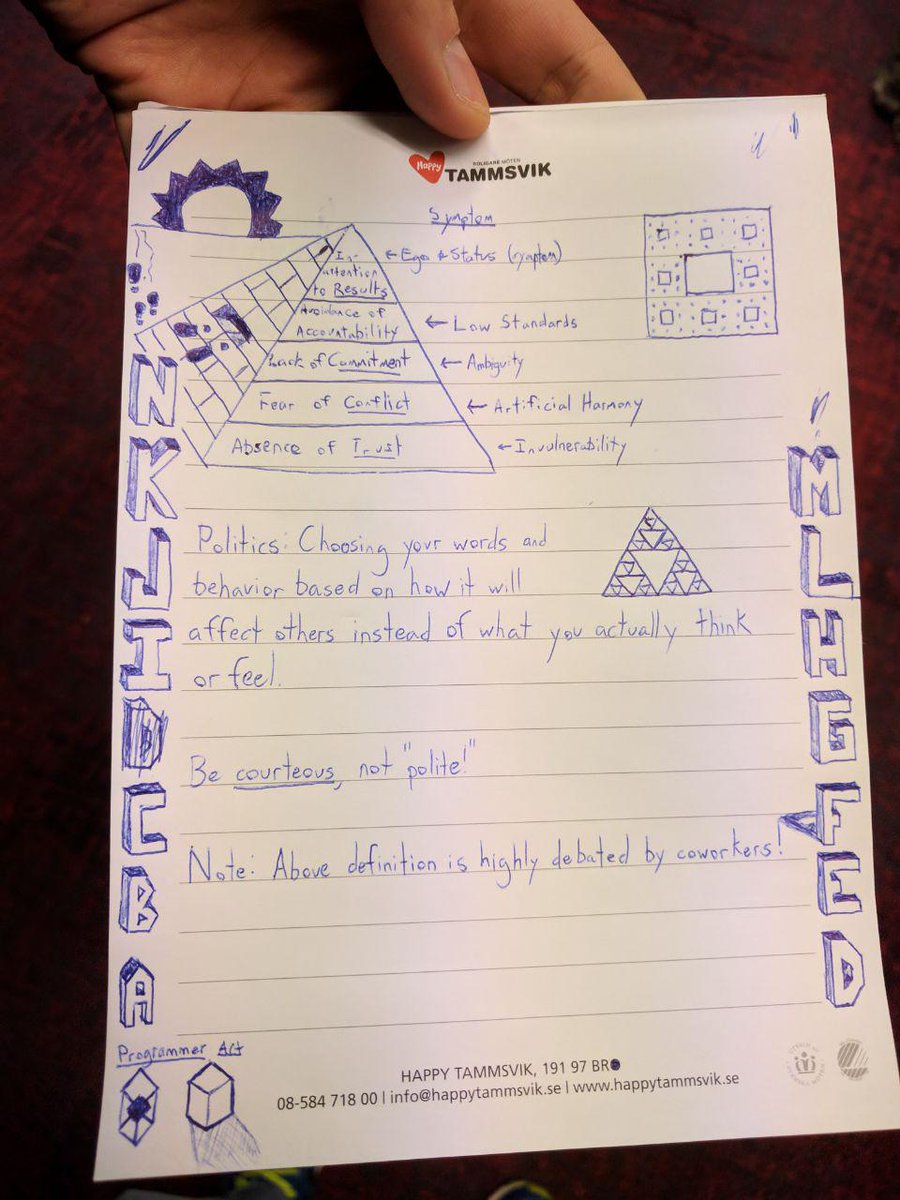 Happy
ROLIGARE MÖTEN
TAMMSVIK
Symptom
In-
attention
to Results
← Ego & Status (symptom)
Avoidance of
Accountability
← Low Standards
Lack of Commitment
← Ambiguity
Fear of Conflict
← Artificial Harmony
Absence of Trust
← Invulnerability
Politics: Choosing your words and
behavior based on how it will
affect others instead of what you actually think
or feel.
Be courteous, not "polite!"
Note: Above definition is highly debated by coworkers!
N
K
J
I
D
C
B
A
M
L
H
G
F
E
D
Programmer Art
HAPPY TAMMSVIK, 191 97 BRO
08-584 718 00 | info@happytammsvik.se | www.happytammsvik.se